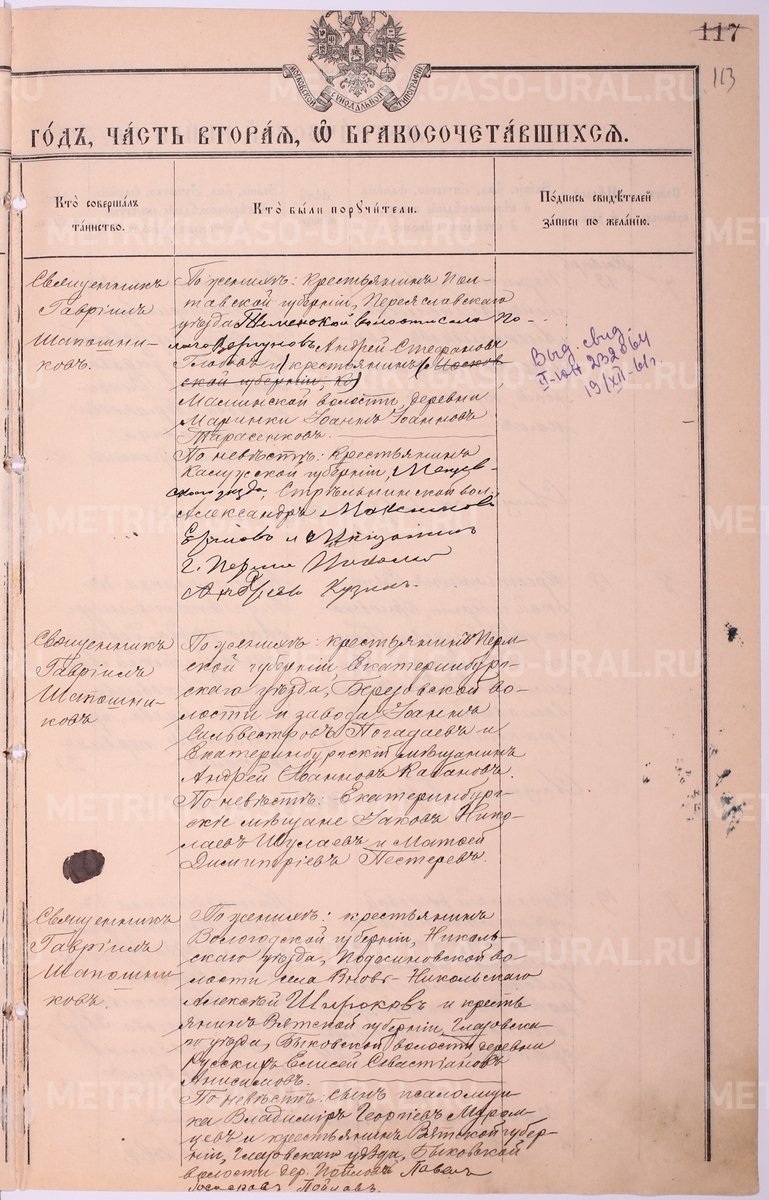 117
113
МОСКОВСКОЙ СѴНОДАЛЬНОЙ ТИПОГРАФІИ
ГО́ДЪ, ЧА́СТЬ ВТОРА́Я, Ѡ БРАКОСОЧЕТА́ВШИХСЯ.
Кто̀ соверша́лъ
та́инство.
Кто̀ бы́ли порꙋчи́тели.
По́дпись свидѣ́телей
за́писи по жела́нїю.
Священникъ
Гавріилъ
Шапошни-
ковъ.
По женихѣ: крестьянинъ Пол-
тавской губерніи, Переяславскаго
уѣзда
Андрей Стефановъ
и крестьянинъ (Москов-
ской губерніи,
волости, деревни
Маринки Іоаннъ Іоанновъ
Тарасенковъ.
По невѣстѣ: крестьянинъ
Калужской губерніи, Мещов-
скаго уѣзда, Стрѣльнинской вол.
Александръ Максимовъ
г. Перми
Андреевъ
Выд. свид.
232864
19/XII-61г.
Священникъ
Гавріилъ
Шапошни-
ковъ
По женихѣ: крестьянинъ Перм-
ской губерніи Екатеринбург-
скаго уѣзда, Березовской во-
лости и завода Іоаннъ
Сильвестровъ Погадаевъ и
Екатеринбургскій мѣщанинъ
Андрей Іоанновъ Кабановъ.
По невѣстѣ: Екатеринбург-
скіе мѣщане Іаковъ Нико-
лаевъ Шулаевъ и Матѳей
Димитріевъ Пестеревъ.
Священникъ
Гавріилъ
Шапошни
ковъ.
По женихѣ: крестьянинъ
Вологодской губерніи, Николь-
скаго уѣзда, Подосиновской во-
лости села Вновь-Никольскаго
Алексѣй Широковъ и кресть
янинъ Вятской губерніи, Глазовска-
го уѣзда, Быковской волости деревни
Елисей Севастіановъ
Анисимовъ.
По невѣстѣ: сынъ псаломщи-
ка Владиміръ Георгіевъ Муром-
цевъ и крестьянинъ Вятской губер-
ніи, Глазовскаго уѣзда, Быковской
волости дер. Павелъ